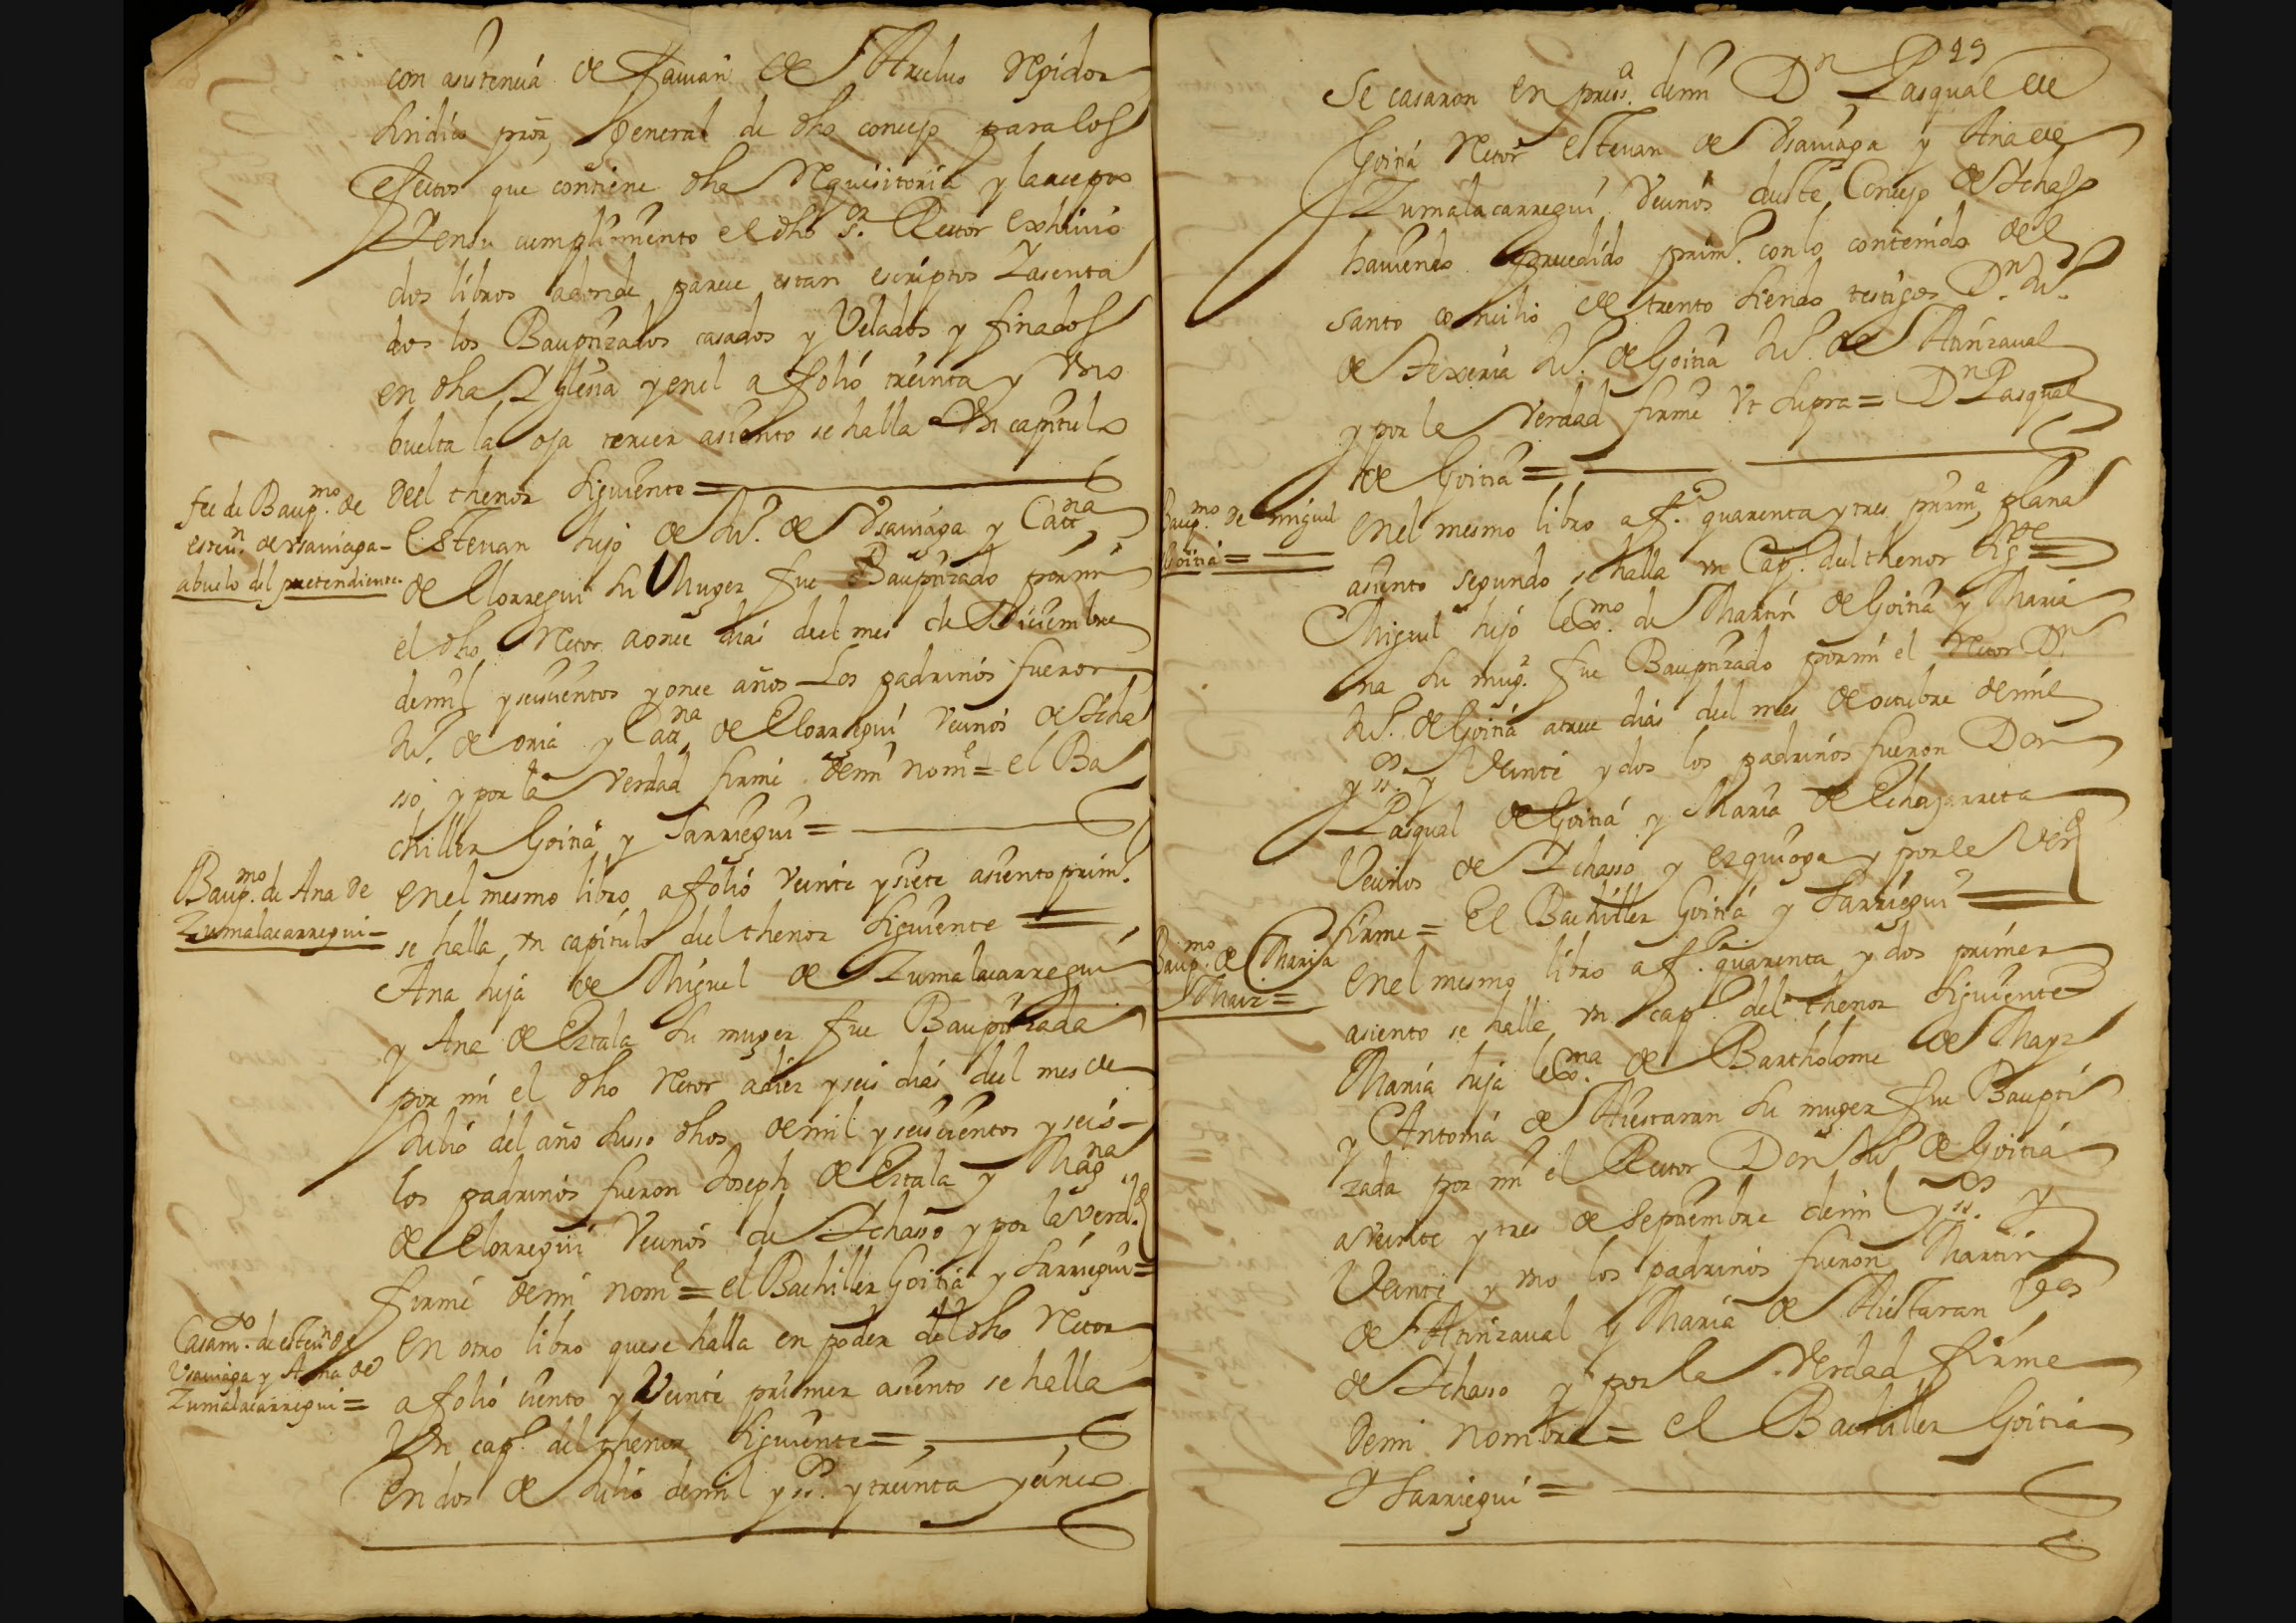 con asistencia de de Aruelus Rejidor
Sindico pror, General de dho concejo para los
efectos que contiene dha Requisitoria y la acepto
Y en su cumplimento el dho sor. Rector exhiuio
dos libros adonde parece estan escriptos Y asenta
dos los Bauptizados casados y Velados y finados
en dha Yglesia y en el a folio treinta y Uno
buelta la oja tercer asiento se halla Un capitulo
Fee de Baupmo. de
esteun. de Vsauiaga-
abuelo del pretendiente.
deel thenor siguiente =
Esteuan hijo de Ju. de Vsauiaga y Catna,
de Elorregui su Muger fue Bauptizado por mi
el dho Retor a once dias deel mes de Diciembre
de mil y seiscientos y once años Los padrinos fueron
Ju. de oria y Catna de Elorregui Vecinos de Ycha
sso y por la Verdad firme de mi nome = el Ba
chiller Goitia y Sarriegui =
Baupmo. de Ana de
Zumalacarregui -
En el mesmo libro a folio Veinte y siete asiento prim.
se halla vn capitulo del thenor siguiente =
Ana hija de Miguel de Zumalacarregui
y Ana de Eztala su muger fue Bauptizada
por mi el dho Retor a diez y seis dias deel mes de
Julio del año susso dhos, de mil y seiscientos y seis -
los padrinos fueron Joseph de Eztala y Magna
de Elorregui Vecinos de Ychasso y por la verd.
firme de mi nome = el Bachiller Goitia y Sarriegui =
Casamto. de esteun de
Vsauiaga y Ana de
Zumalacarregui =
En otro libro que se halla en poder del dho Retor
a folio ciento y Veinte primer asiento se halla
Vn capo. del thenor siguiente =
En dos de Julio de mil y ssos. y treinta y cinco
29
Se casaron en press.a de mi Dn Pasqual de
Goitia Retor Esteuan de Vsauiaga y Ana de
Zumalacarregui Vecinos deste Concejo de Ychasso
hauiendo precedido prim.o con lo contenido del
santo concilio de trento siendo testigos Dn. Ju.
de Ju. de Goitia Ju. de Atinzaual
y por la Verdad firme Vt supra = Dn Pasqual
de Goitia =
Baupmo. de Miguel
Goitia =
En el mesmo libro a fo. quarenta y tres prima, plana
asiento segundo se halla vn Capo. del thenor sigte =
Miguel hijo lexmo. de Martin de Goitia y Maria
na su mugr. fue Bauptizado por mi el Retor Dn
Ju. de Goitia a trece dias deel mes de octubre de mil
y ssos. y Veinte y dos los padrinos fueron Don
Pasqual de Goitia y Maria de Echajarreta
Vecinos de Ychasso y ezquioga y por la Verd
firme = El Bachiller Goitia y Sarriegui =
Baupmo. de Maria
Maiz =
En el mesmo libro a fo. quarenta y dos primer
asiento se halla vn capo. del thenor siguiente
Maria hija lexma. de Bartholome de Mayz
y Antonia de Aiestaran su muger fue Baupti
zada por mi el Rector Don Ju de Goitia
a veinte y tres de septiembre de mil y ssos. y
Veinte y vno los padrinos fueron Martin
de Atinzaual y Maria de Aiestaran Vos
de Ychasso y por la Verdad firme
de mi Nombre = el Bachiller Goitia
y Sarriegui =